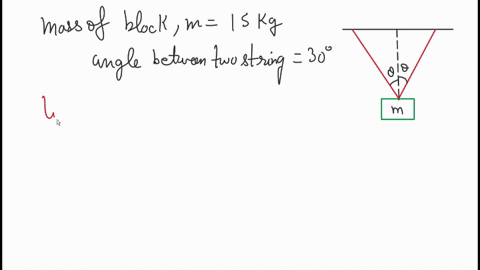 mass of block, m = 15 Kg
angle between two string = 30°
θ θ
m